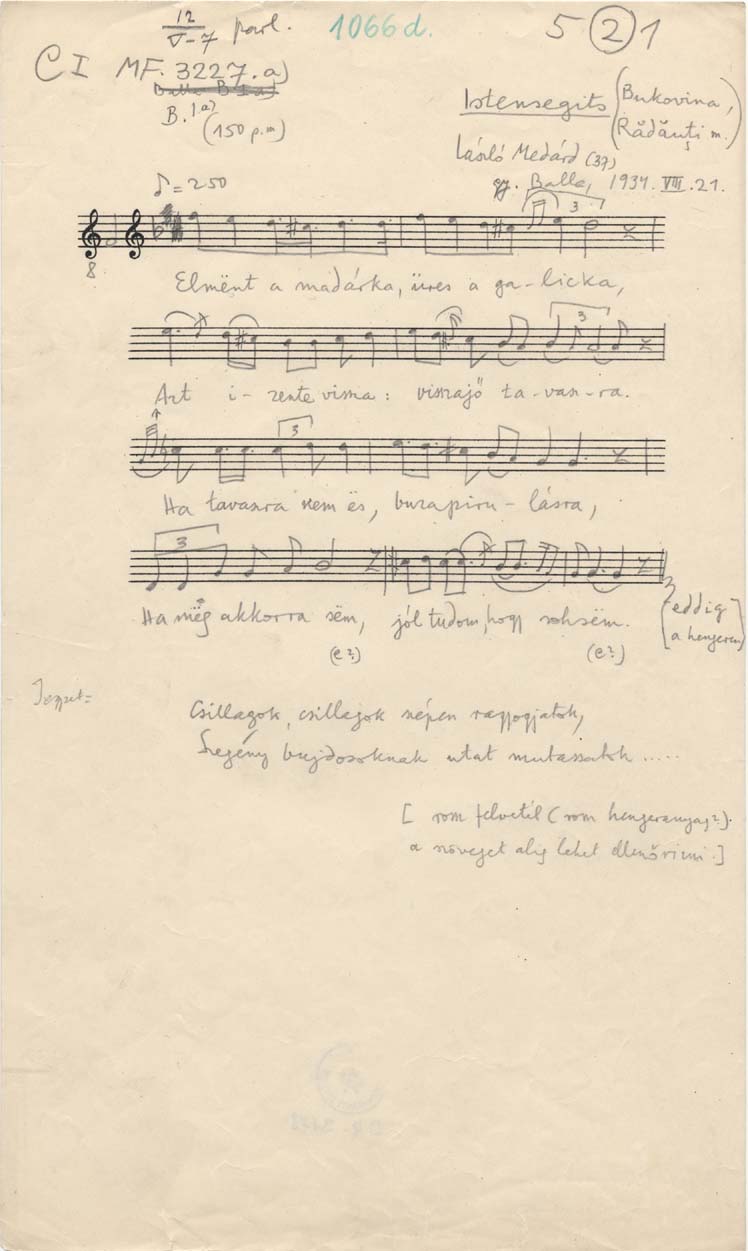 12 / V-7 parl.
1066 d.
5 (2) 1
C I MF. 3227. a)
Balla B 1 a)
B. 1 a)
(150 p.m)
Istensegits (Bukovina, Rădăuți m.)
László Medárd (37)
gy. Balla, 1934. VIII. 21.
♪ = 250
3
8
Elmënt a madárka, üres a ga-licka,
3
Azt i-zente vissza: visszajő ta-vasz-ra.
3
Ha tavaszra nem ës, buzapiru-lásra,
3
Ha mëg akkorra sëm, jól tudom, hogy sohsëm.
[eddig a hengeren]
(e?) (e?)
Csillagok, csillagok szépen ragyogjatok,
Szegény bujdosoknak utat mutassatok .....
[rossz felvétel (rossz hengeranyag?).
a szöveget alig lehet ellenőrizni.]